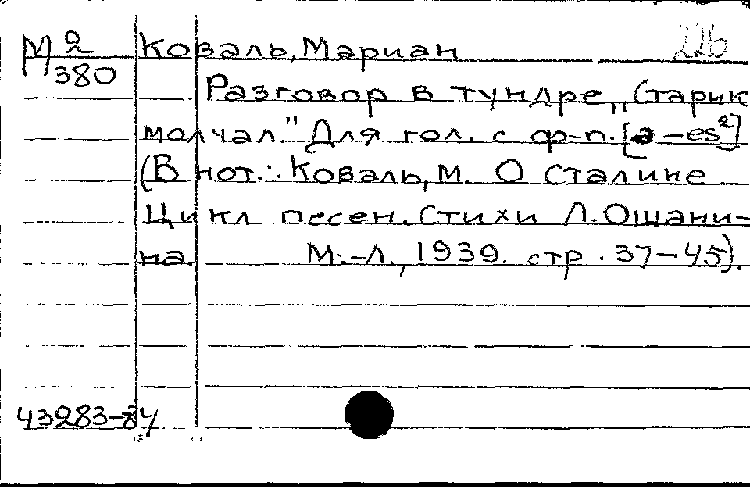 М 2 Коваль, Мариан 226
380
Разговор в тундре „Старик
молчал" Для гол. с ф-п. [a-es²]
(В нот.: Коваль, М. О Сталине
Цикл песен. Стихи Л. Ошани-
на. М.-Л., 1939. стр. 37-45).
43283-84